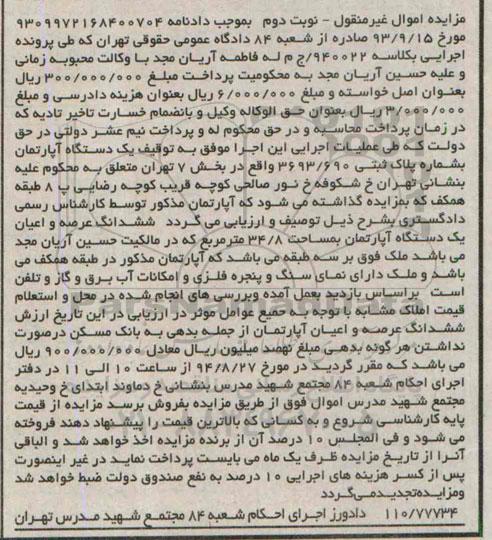 مزایده اموال غیرمنقول - نوبت دوم بموجب دادنامه ۹۳۰۹۹۷۲۱۶۸۴۰۰۷۰۴
مورخ ۹۳/۹/۱۵ صادره از شعبه ۸۴ دادگاه عمومی حقوقی تهران که طی پرونده
اجرایی بکلاسه ۹۴۰۰۲۲/ج م له فاطمه آریان مجد با وکالت محبوبه زمانی
و علیه حسین آریان مجد به محکومیت پرداخت مبلغ ۳۰۰/۰۰۰/۰۰۰ ریال
بعنوان اصل خواسته و مبلغ ۶/۰۰۰/۰۰۰ ریال بعنوان هزینه دادرسی و مبلغ
۳/۰۰۰/۰۰۰ ریال بعنوان حق الوکاله وکیل و بانضمام خسارت تاخیر تادیه که
در زمان پرداخت محاسبه و در حق محکوم له و پرداخت نیم عشر دولتی در حق
دولت که طی عملیات اجرایی این اجرا موفق به توقیف یک دستگاه آپارتمان
بشماره پلاک ثبتی ۳۶۹۳/۶۹۰ واقع در بخش ۷ تهران متعلق به محکوم علیه
بنشانی تهران خ شکوفه خ نور صالحی کوچه قریب کوچه رضایی پ ۸ طبقه
همکف که بمزایده گذاشته می شود که آپارتمان مذکور توسط کارشناس رسمی
دادگستری بشرح ذیل توصیف و ارزیابی می گردد ششدانگ عرصه و اعیان
یک دستگاه آپارتمان بمساحت ۳۴/۸ مترمربع که در مالکیت حسین آریان مجد
می باشد ملک فوق بر سه طبقه می باشد که آپارتمان مذکور در طبقه همکف می
باشد و ملک دارای نمای سنگ و پنجره فلزی و امکانات آب برق و گاز و تلفن
است براساس بازدید بعمل آمده وبررسی های انجام شده در محل و استعلام
قیمت املاک مشابه با توجه به جمیع عوامل موثر در ارزیابی در این تاریخ ارزش
ششدانگ عرصه و اعیان آپارتمان از جمله بدهی به بانک مسکن درصورت
نداشتن هر گونه بدهی مبلغ نهصد میلیون ریال معادل ۹۰۰/۰۰۰/۰۰۰ ریال
می باشد که مقرر گردید در مورخ ۹۴/۸/۲۷ از ساعت ۱۰ الی ۱۱ در دفتر
اجرای احکام شعبه ۸۴ مجتمع شهید مدرس بنشانی خ دماوند ابتدای خ وحیدیه
مجتمع شهید مدرس اموال فوق از طریق مزایده بفروش برسد مزایده از قیمت
پایه کارشناسی شروع و به کسانی که بالاترین قیمت را پیشنهاد دهند فروخته
می شود و فی المجلس ۱۰ درصد آن از برنده مزایده اخذ خواهد شد و الباقی
آنرا از تاریخ مزایده ظرف یک ماه می بایست پرداخت نماید در غیر اینصورت
پس از کسر هزینه های اجرایی ۱۰ درصد به نفع صندوق دولت ضبط خواهد شد
ومزایده تجدید می گردد
۱۱۰/۷۷۷۳۴ دادورز اجرای احکام شعبه ۸۴ مجتمع شهید مدرس تهران